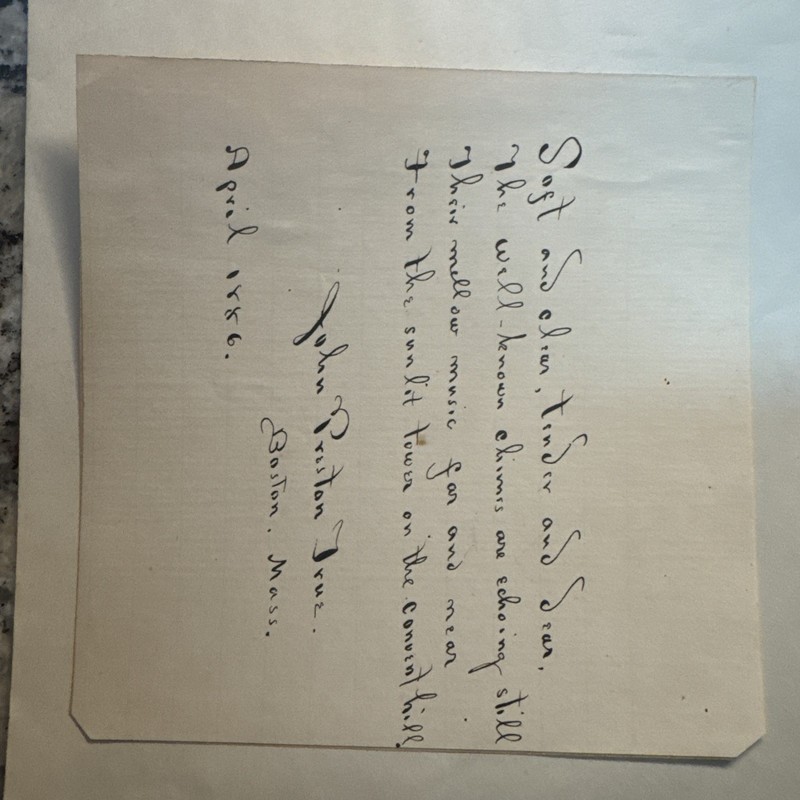 Soft and clear, tender and dear,
The well-known chimes are echoing still
Their mellow music far and near
From the sunlit tower on the convent hill.
John Preston True.
Boston, Mass.
April 1886.